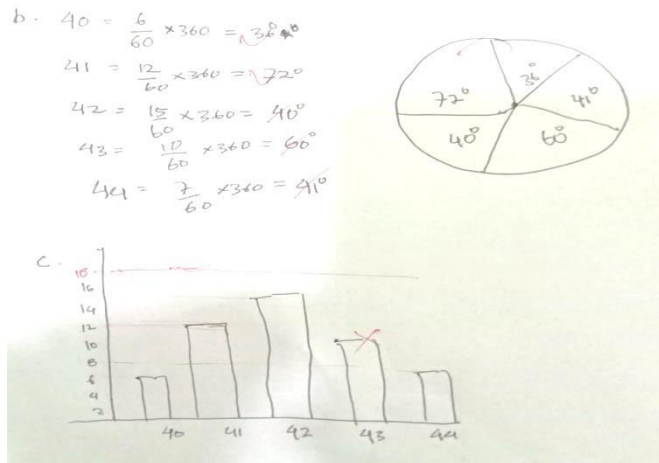 b. 40 = 6/60 ×360 = 36°
41 = 12/60 ×360 = 72°
42 = 15/60 ×360 = 40°
43 = 10/60 ×360 = 60°
44 = 7/60 ×360 = 41°
36°
72° 41°
40° 60°
c.
18
16
14
12
10
8
6
4
2
40 41 42 43 44